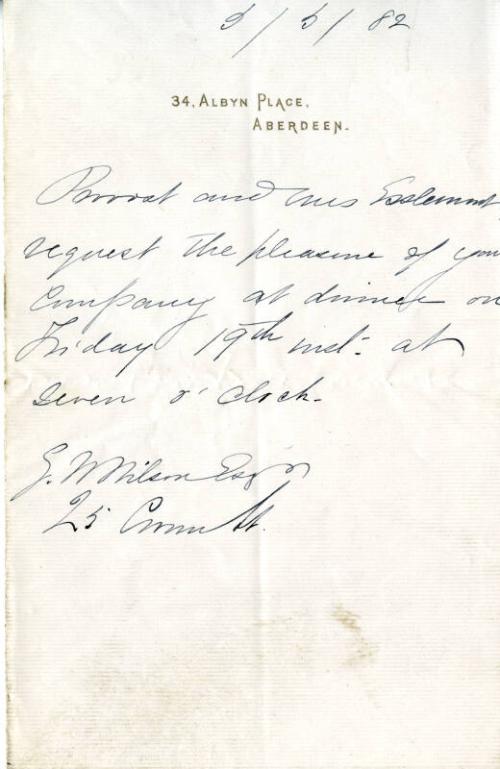 5/5/82
34, ALBYN PLACE,
ABERDEEN.
Provost and Mrs Esslemont
request the pleasure of your
Company at dinner on
Friday 19th inst: at
Seven o'clock.
G. W Wilson Esqr
25 Crown St.